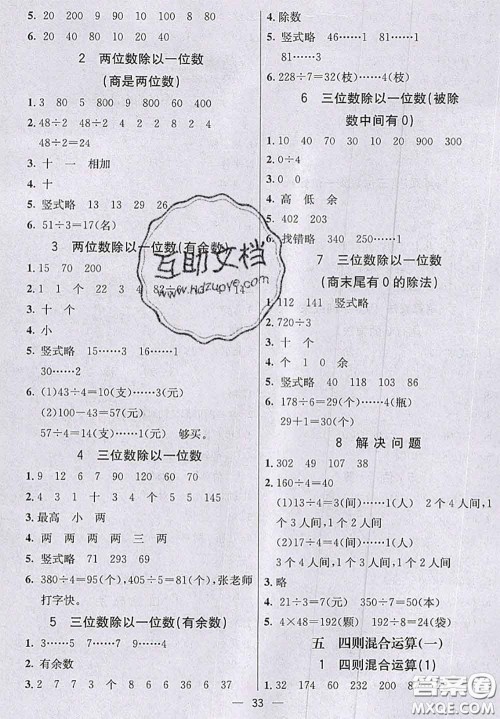 5. 竖式略 17 19 15
2 两位数除以一位数
(商是两位数)
1. 3 80 5 800 9 800 60 40
2. 48÷2 48÷2 48÷2
48÷2=24
3. 十 一 相加
4. 十
5. 竖式略 13 13 29 26
6. 51÷3=17(名)
3 两位数除以一位数(有余数)
1. 15 70 20
3. 十 个
4. 小
5. 竖式略 15……3 16……1
30……2 19……3
6. (1)43÷4=10(支)……3(元)
(2)100-43=57(元)
57÷4=14(支)……1(元) 够买。
4 三位数除以一位数
1. 9 12 6 7 90 120 60 70
2. 4 3 1 十 3 4 个 5 145
3. 最高 小 两
4. 两 两 两 两 三 两
5. 竖式略 71 293 69
6. 380÷4=95(个),405÷5=81(个),张老师
打字快。
5 三位数除以一位数(有余数)
1. 3……5 7……4 9……4 6……3
2. 有余数
3. 2 7 7 3 8 6 8 6 36 1 36 6 37
4. 除数
5. 竖式略 46……1 51……1
81……3
6. 228÷7=32(枝)……4(枝)
6 三位数除以一位数(被除
数中间有0)
1. 10 40 30 10 20 900 300
2. 0÷4
3. 0
4. 高 低 余
5. 402 203
6. 找错略 340 250……1
7 三位数除以一位数
(商末尾有0的除法)
1. 112 141 竖式略
2. 720÷3
3. 十
4. 个 1 0 余
5. 竖式略 40 118 103 86
6. 178÷6=29(个)……4(瓶)
29+1=30(个)
8 解决问题
1. 302 49 107 38
2. 160÷4=40(元)
(1)13÷4=3(间)……1(人) 2个4人间,
1个3人间,1个2人间
(2)14÷4=3(间)……2(人) 3个4人间,
1个2人间
3. 略
4. 21÷3=7(元) 350÷7=50(本)
5. 4×48=192(颗) 192÷8=24(袋)
五 四则混合运算(一)
1 四则混合运算(1)
1. 32 174 60 232 216
33
互助文档
www.Hdzuoye.
答案圈
MXQE.COM